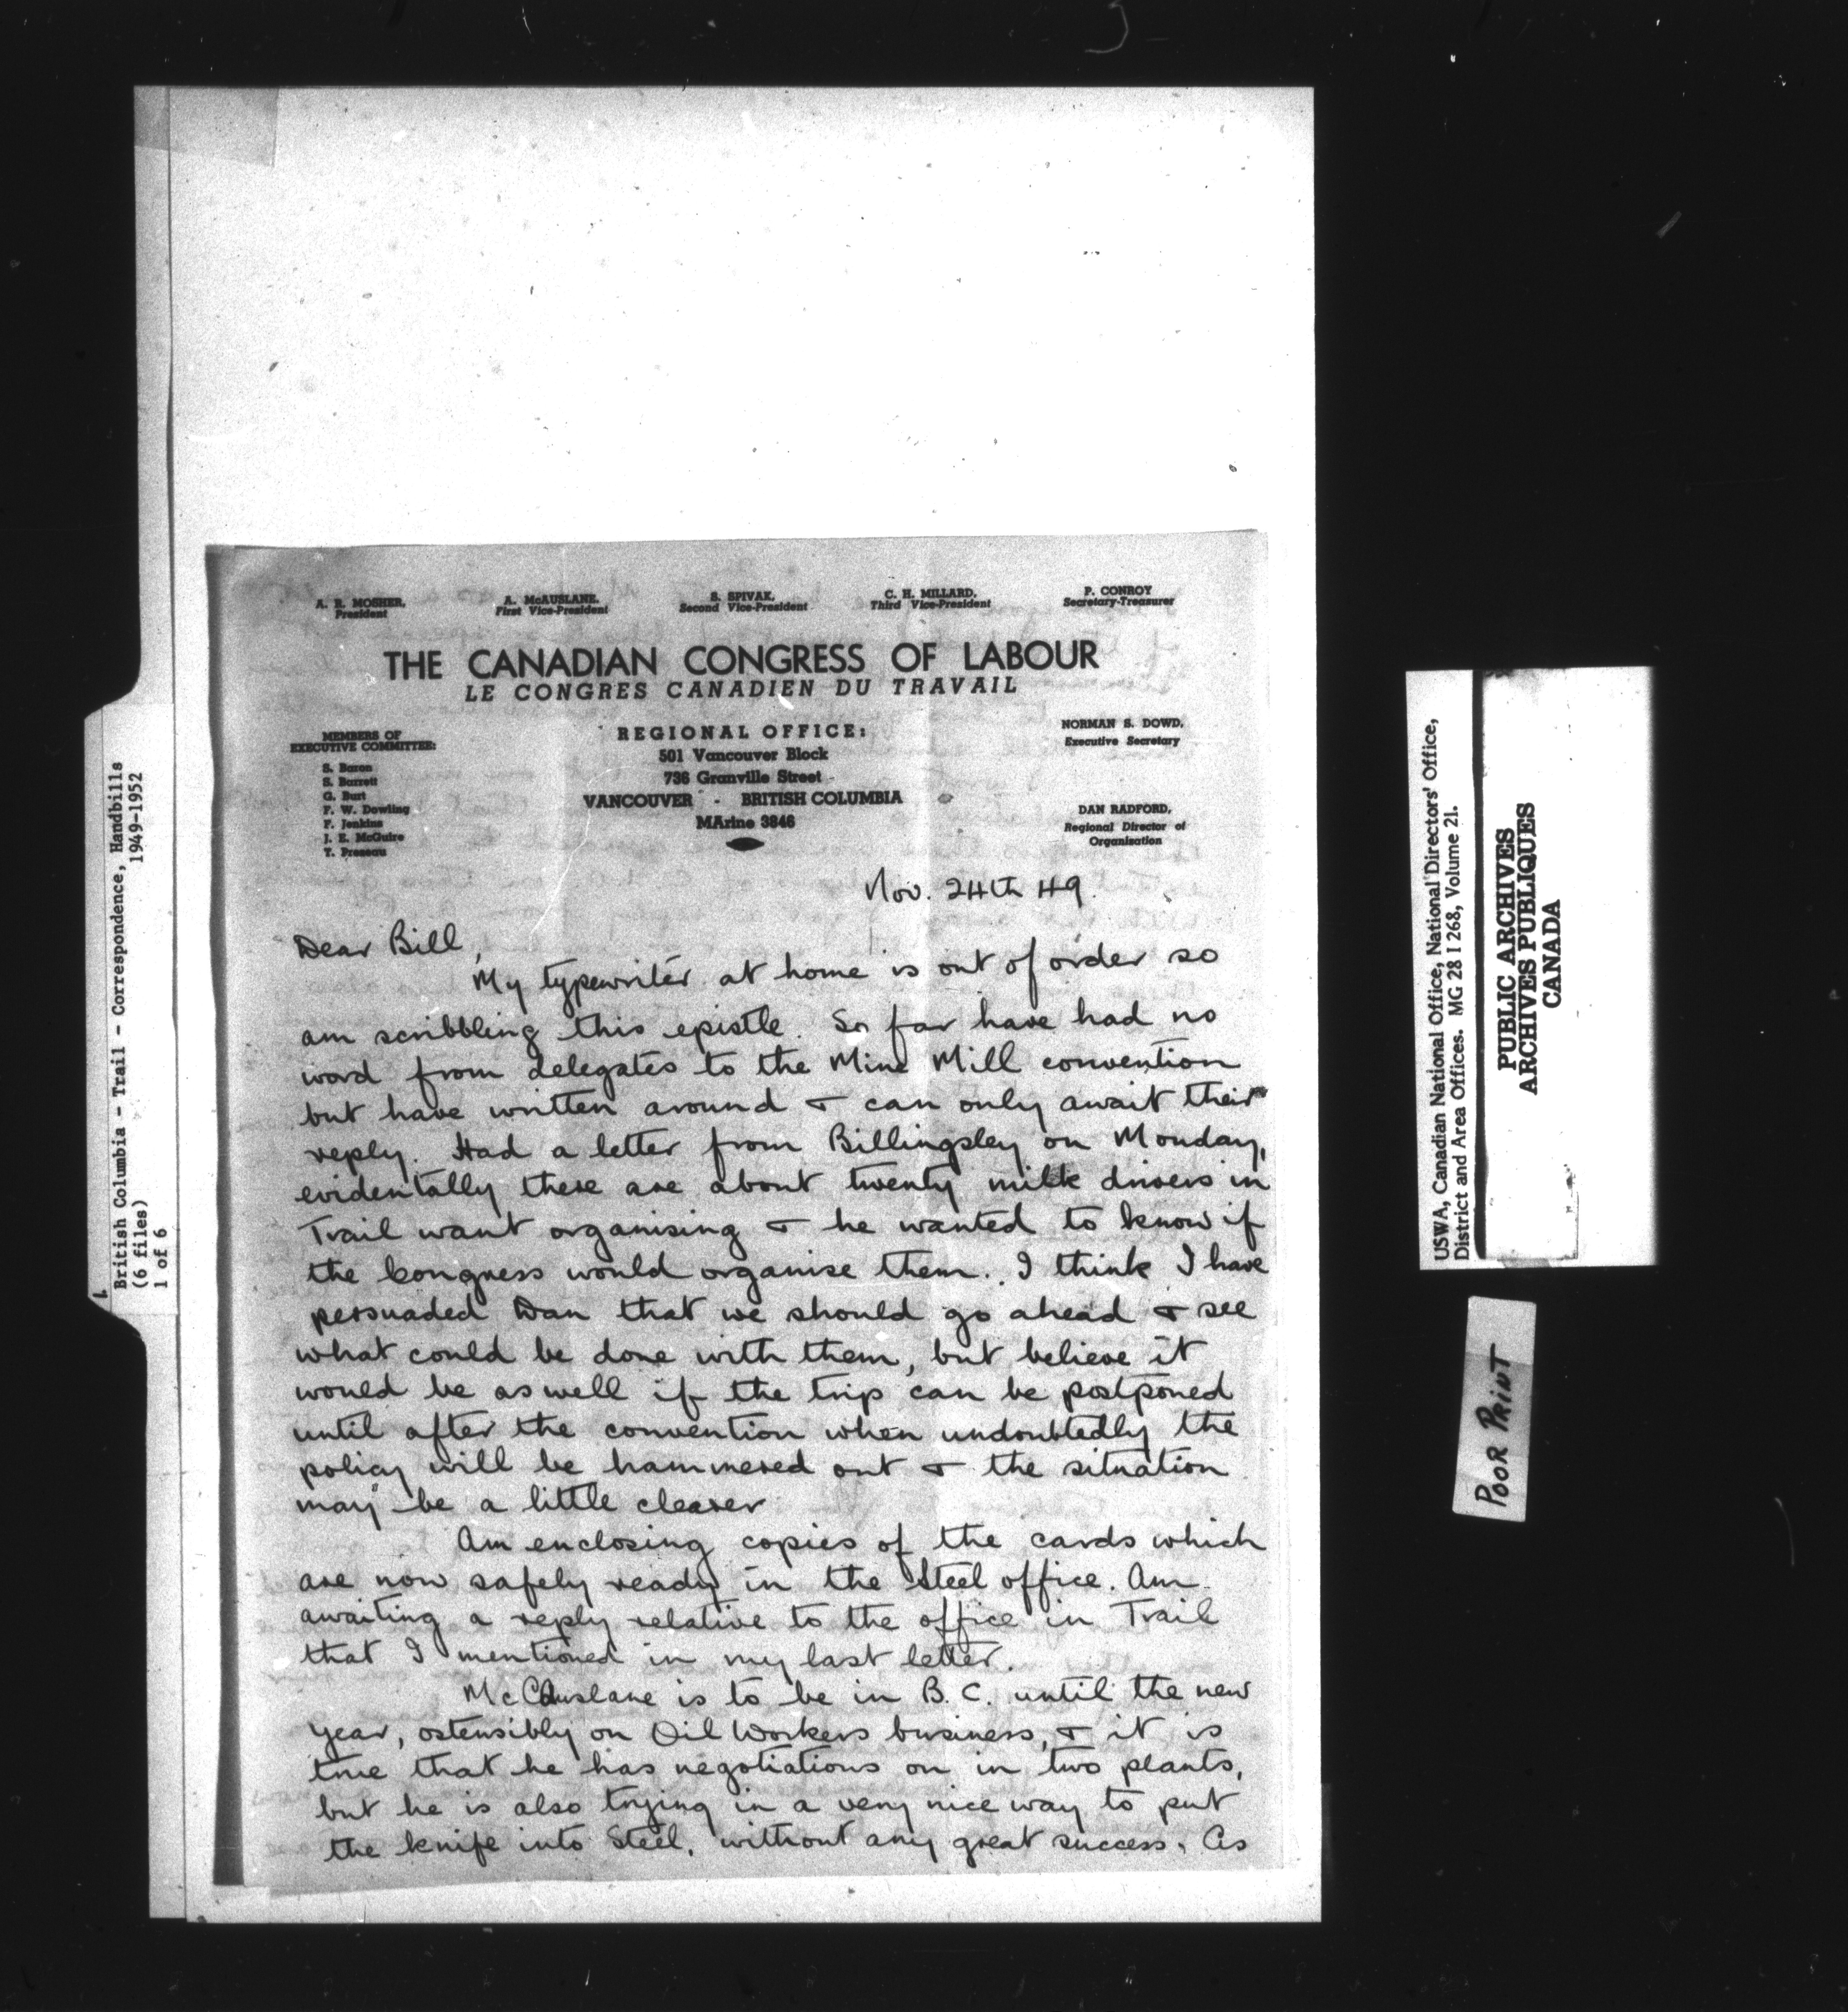 British Columbia - Trail - Correspondence, Handbills
1949-1952
(6 files)
1 of 6
A. R. MOSHER,
President
A. McAUSLANE,
First Vice-President
S. SPIVAK,
Second Vice-President
C. H. MILLARD,
Third Vice-President
P. CONROY
Secretary-Treasurer
THE CANADIAN CONGRESS OF LABOUR
LE CONGRES CANADIEN DU TRAVAIL
MEMBERS OF
EXECUTIVE COMMITTEE:
S. Baron
S. Barrett
G. Burt
F. W. Dowling
F. Jenkins
J. E. McGuire
T. Preseau
REGIONAL OFFICE:
501 Vancouver Block
736 Granville Street
VANCOUVER - BRITISH COLUMBIA
MArine 3846
NORMAN S. DOWD,
Executive Secretary
DAN RADFORD,
Regional Director of
Organisation
Nov. 24th 49.
Dear Bill,
My typewriter at home is out of order so
am scribbling this epistle. So far have had no
word from delegates to the Mine Mill convention
but have written around & can only await their
reply. Had a letter from Billingsley on Monday,
evidentally there are about twenty milk drivers in
Trail want organising & he wanted to know if
the Congress would organise them. I think I have
persuaded Dan that we should go ahead & see
what could be done with them, but believe it
would be as well if the trip can be postponed
until after the convention when undoubtedly the
policy will be hammered out & the situation
may be a little clearer
Am enclosing copies of the cards which
are now safely ready in the Steel office. Am
awaiting a reply relative to the office in Trail
that I mentioned in my last letter.
McAuslane is to be in B.C. until the new
year, ostensibly on Oil Workers business, & it is
true that he has negotiations on in two plants,
but he is also trying in a very nice way to put
the knife into Steel, without any great success. As
USWA, Canadian National Office, National Directors' Office,
District and Area Offices. MG 28 I 268, Volume 21.
PUBLIC ARCHIVES
ARCHIVES PUBLIQUES
CANADA
POOR PRINT